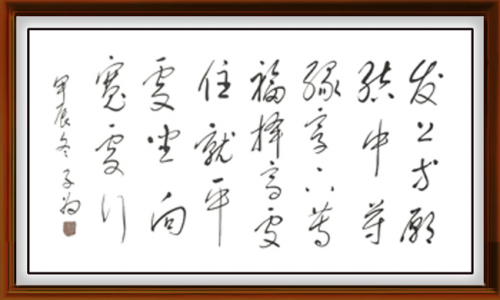 发上等愿
结中等
缘享下等
福择高处
住就平
处坐向
宽处行
甲辰冬子为